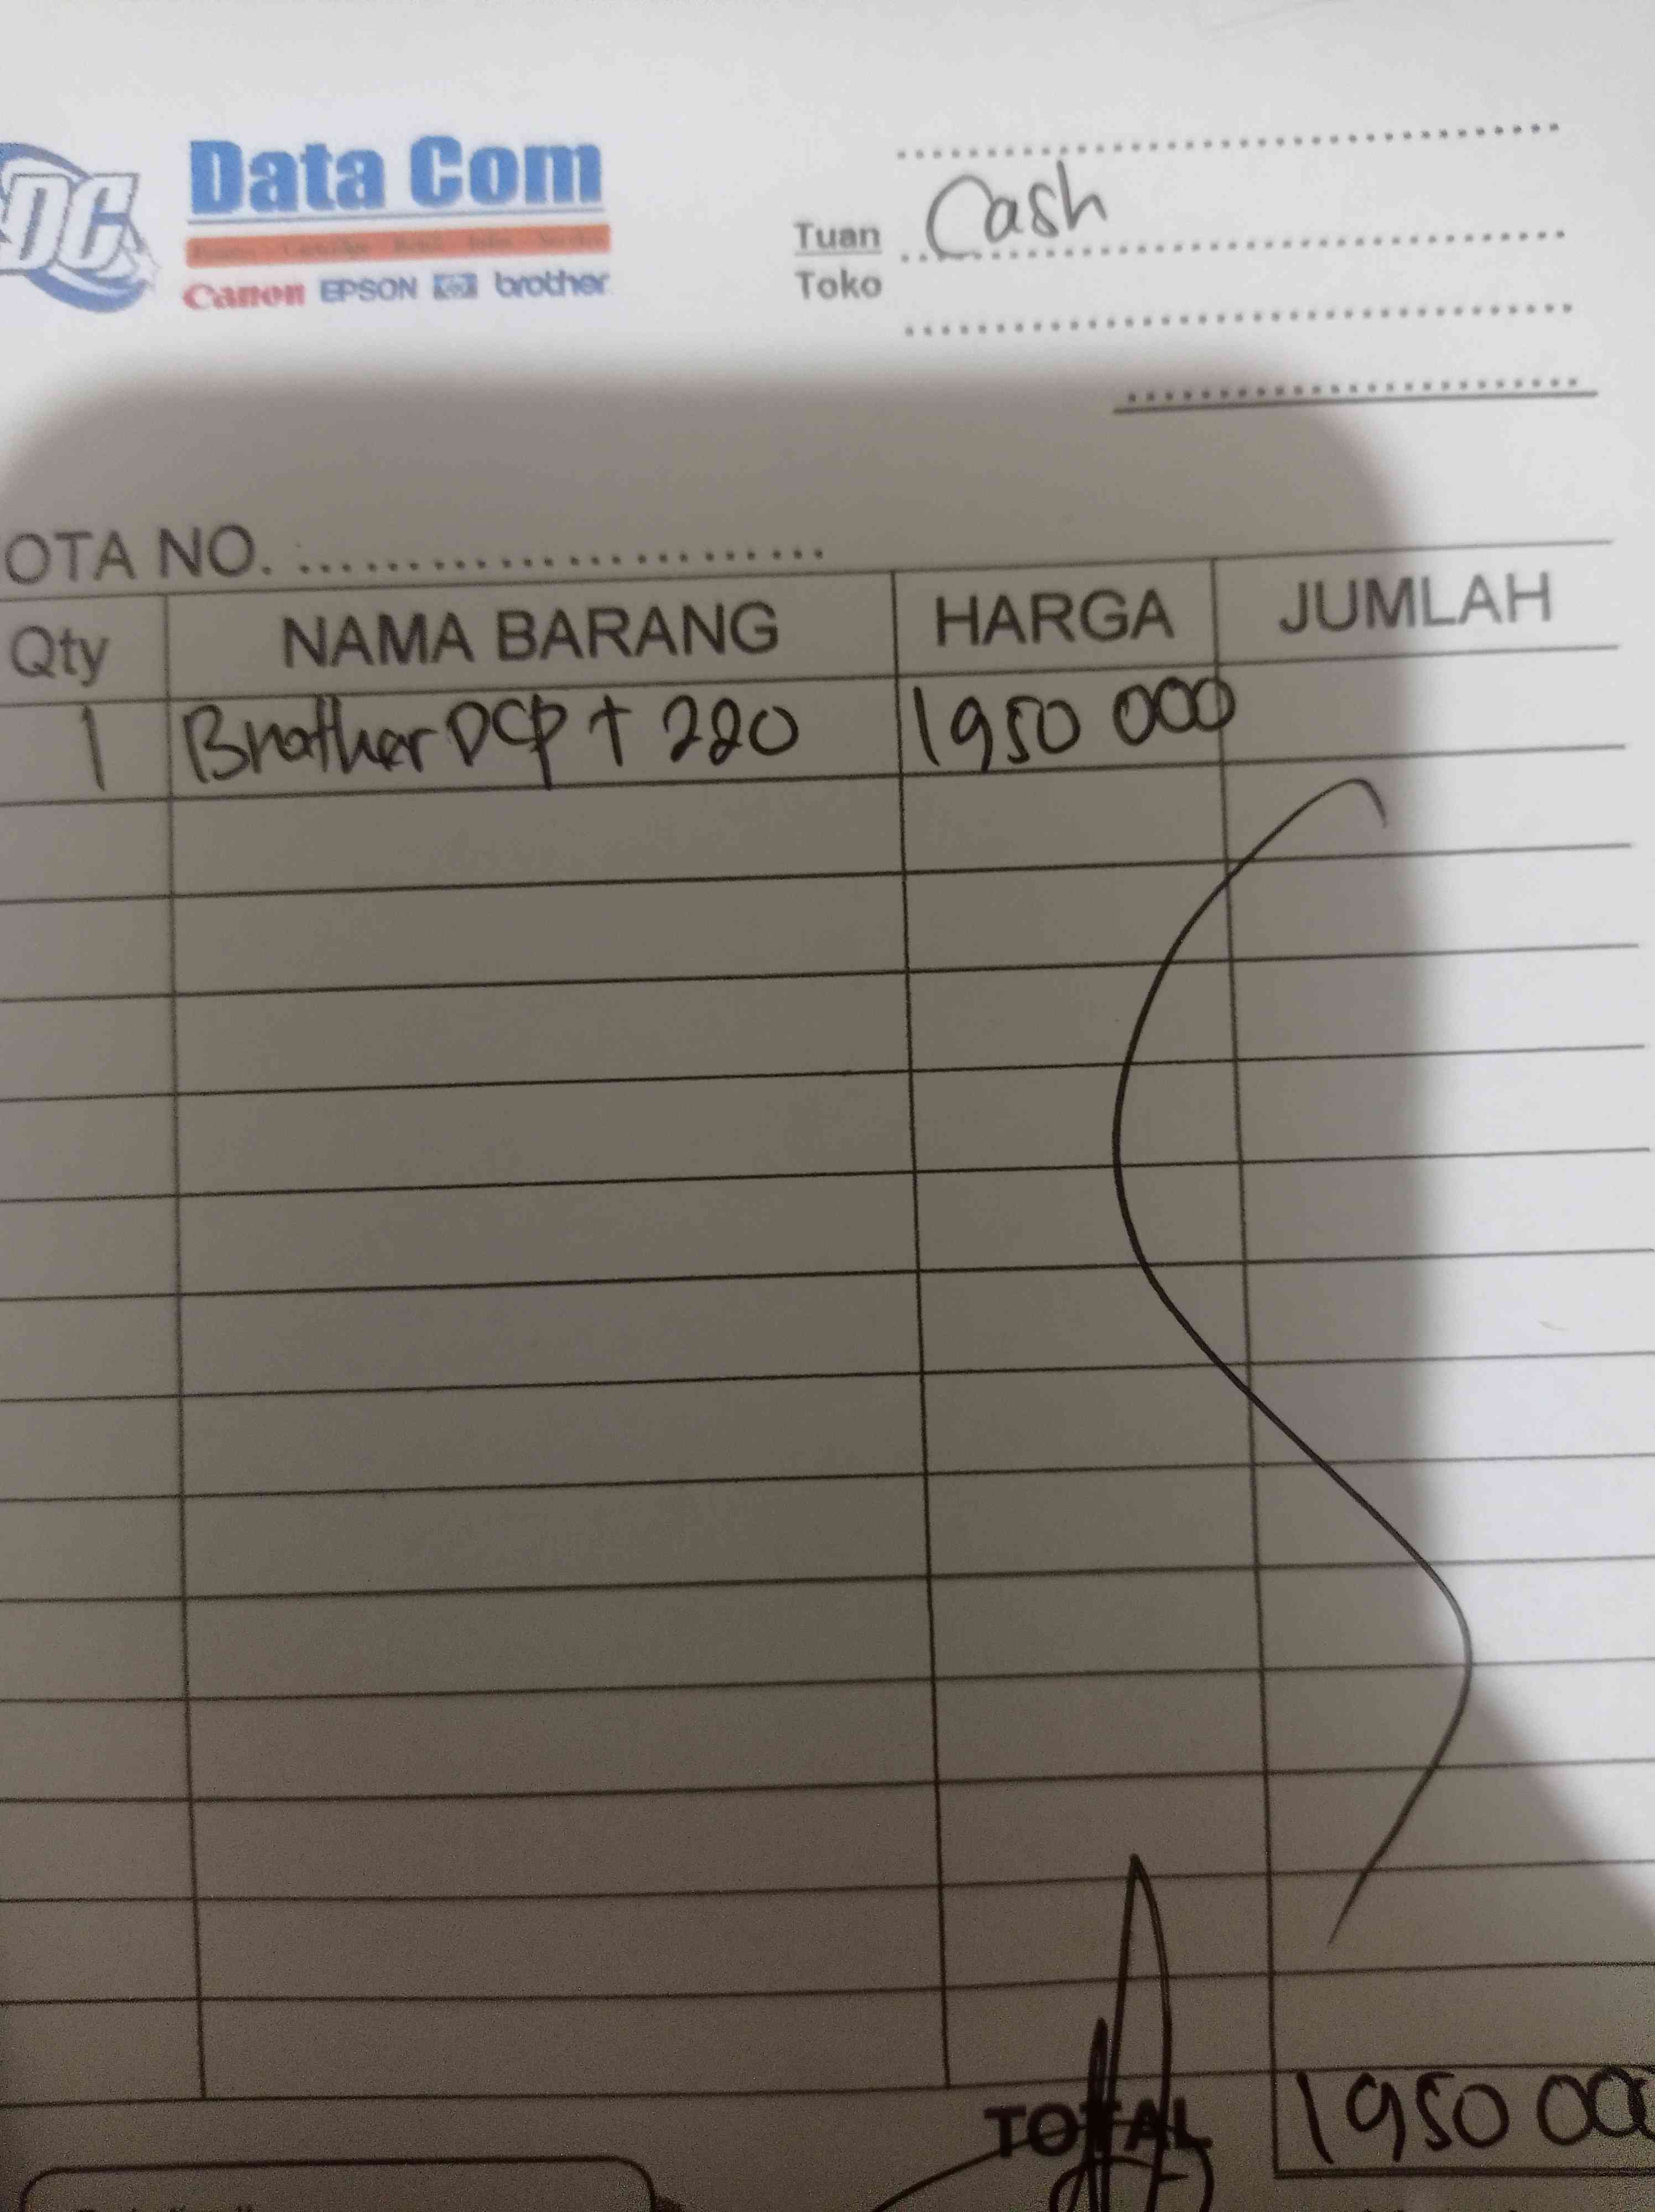 DC
Data Com
Canon EPSON hp brother
Tuan Cash
Toko
OTA NO.
Qty NAMA BARANG HARGA JUMLAH
1 Brother DCP T 220 1950 000
TOTAL 1950 00